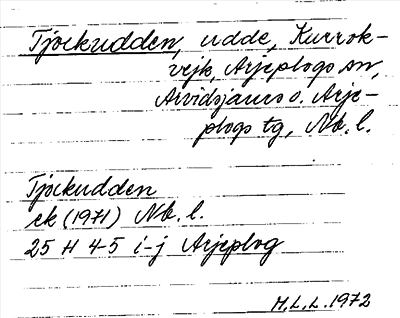 Tjockudden, udde, Kurrok-
vejk, Arjeplogs sn,
Arvidsjaurs o. Arje-
plogs tg, Nb. l.
Tjockudden
ek (1971) Nb. l.
25 H 4-5 i-j Arjeplog
H.L.L. 1972